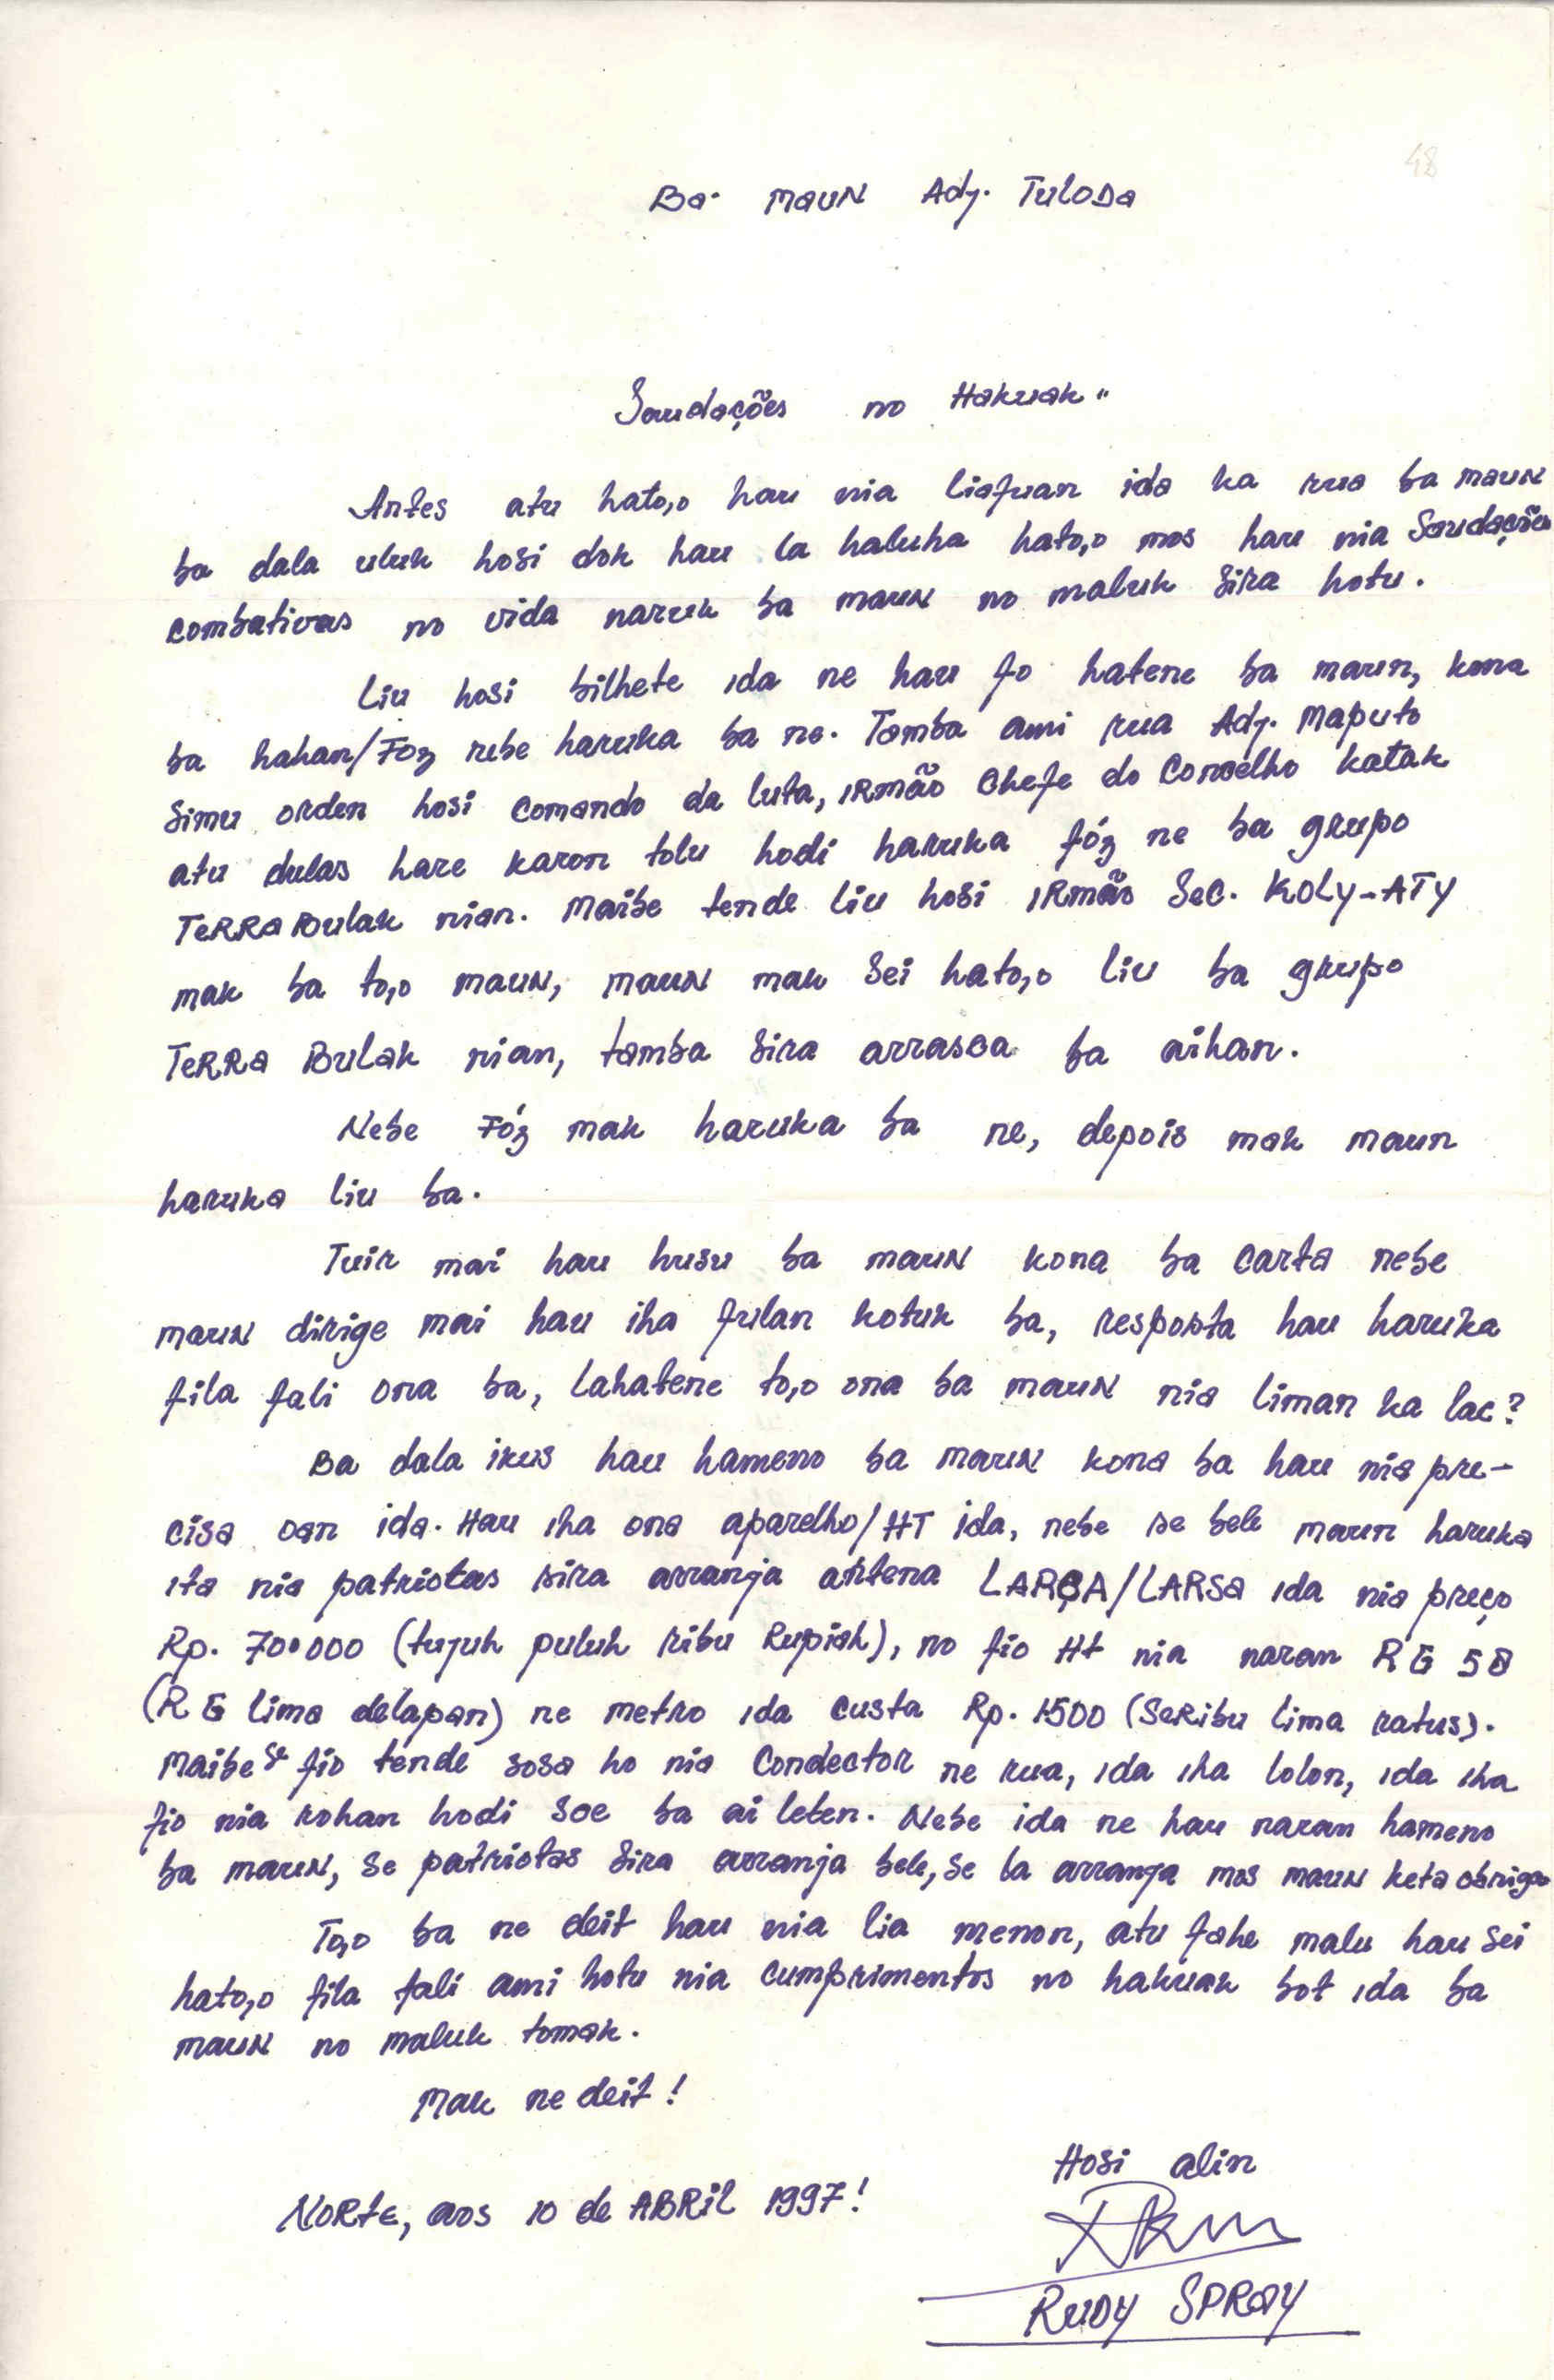 48
Ba. maun Adj. Tuloda
Saudações no Hakuak"
Antes atu hato,o hau nia liafuan ida ka rua ba maun
ba dala uluk hosi dok hau la haluha hato,o mos hau nia Saudações
combativas no vida naruk ba maun no maluk sira hotu.
Liu hosi bilhete ida ne hau fo hatene ba maun, kona
ba hahan/Foz nebe haruka ba ne. Tamba ami rua Adj. Maputo
simu orden hosi comando da luta, IRmão Chefe do Concelho katak
atu dulas hare karon tolu hodi haruka fóz ne ba grupo
TeRRa Bulak nian. Maibe tende liu hosi IRmão Sec. KOLY-ATY
mak ba to,o maun, maun mak sei hato,o liu ba grupo
TeRRa Bulak nian, tamba sira arrasca ba aihan.
Nebe Fóz mak haruka ba ne, depois mak maun
haruka liu ba.
Tuir mai hau husu ba maun kona ba carta nebe
maun dirige mai hau iha fulan kotuk ba, resposta hau haruka
fila fali ona ba, lahatene to,o ona ba maun nia liman ka lae?
Ba dala ikus hau hameno ba maun kona ba hau nia pre-
cisa oan ida. Hau iha ona aparelho/HT ida, nebe se bele maun haruka
ita nia patriotas sira arranja antena LARÇA/LARSA ida nia preço
Rp. 70.000 (tujuh puluh ribu Rupiah), no fio Ht nia naran RG 58
(RG lima delapan) ne metro ida custa Rp. 1500 (Seribu lima ratus).
Maibe se fio tende sosa ho nia Condector ne rua, ida iha lolon, ida iha
fio nia rohan hodi soe ba ai leten. Nebe ida ne hau naran hameno
ba maun, se patriotas sira arranja bele, se la arranja mos maun keta obriga
To,o ba ne deit hau nia lia menon, atu fahe malu hau sei
hato,o fila fali ami hotu nia cumprimentos no hakuak bot ida ba
maun no maluk tomak.
Mak ne deit!
Hosi alin
NORTE, aos 10 de ABRIL 1997!
RUDY SPRAY